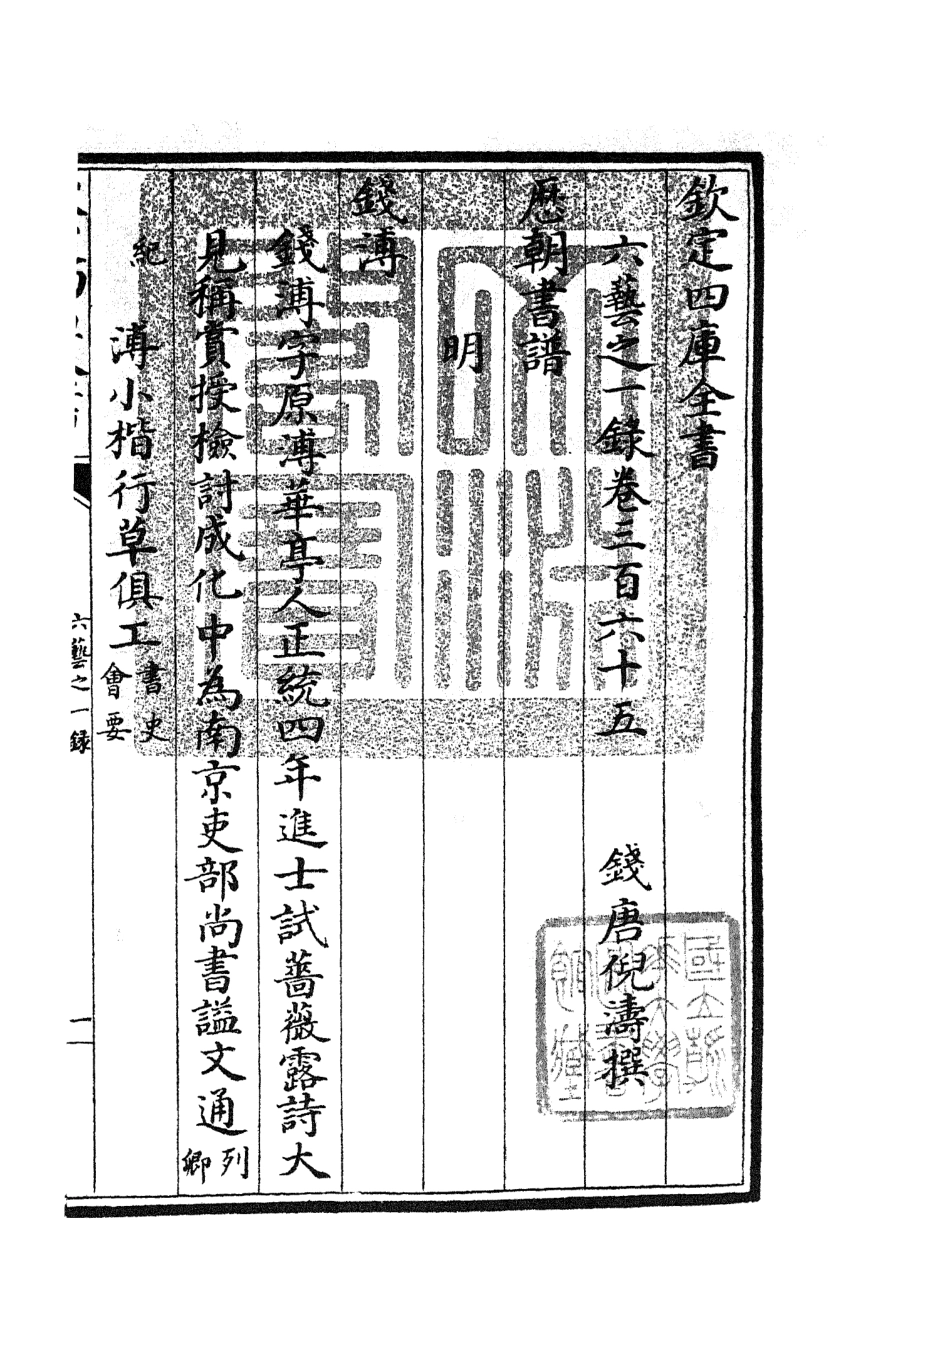 欽定四庫全書
六藝之一錄卷三百六十五
錢唐倪濤撰
歷朝書譜
明
錢溥
錢溥字原溥華亭人正統四年進士試薔薇露詩大
見稱賞授檢討成化中為南京吏部尚書謚文通列卿
紀
溥小楷行草俱工書史會要
六藝之一錄
一